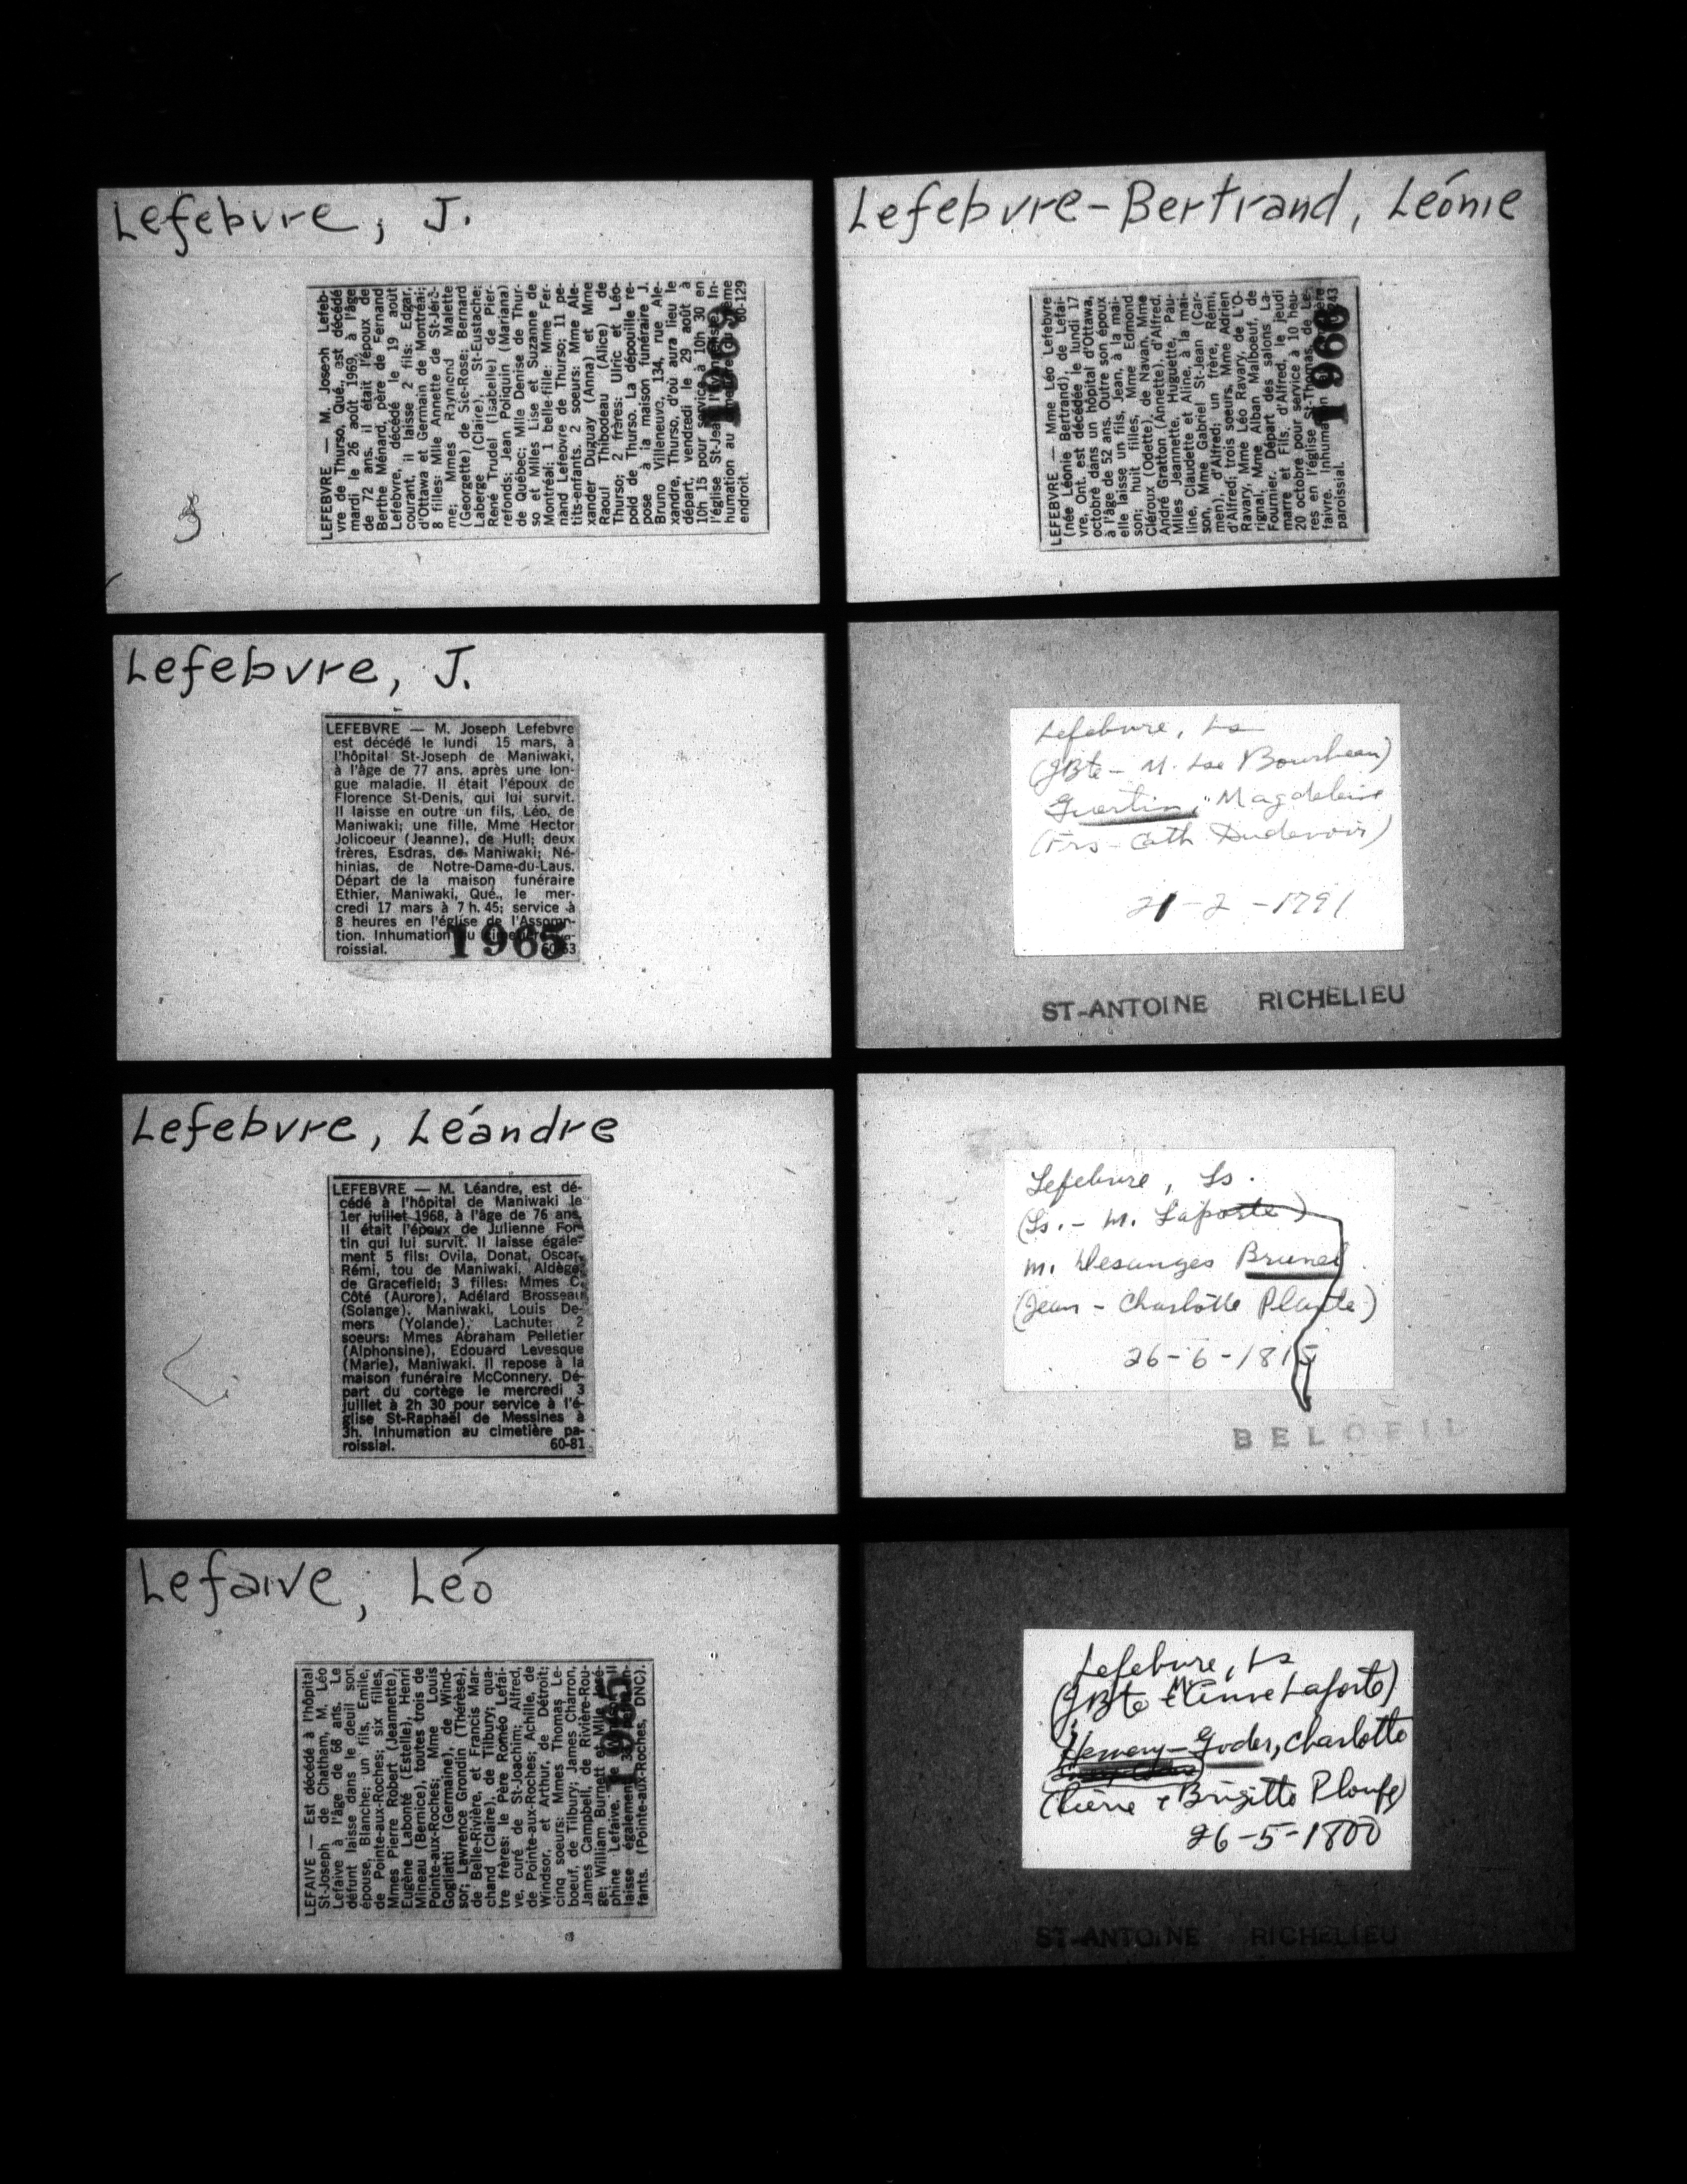 Lefebvre, J.
LEFEBVRE — M. Joseph Lefeb-
vre de Thurso, Qué., est décédé
mardi le 26 août 1969, à l'âge
de 72 ans. il était l'époux de
Berthe Ménard, père de Fernand
Lefebvre, décédé le 19 août
courant, il laisse 2 fils: Edgar,
d'Ottawa et Germain de Montréal;
8 filles: Mlle Annette de St-Jérô-
me; Mmes Raymond Malette
(Georgette) de Ste-Rose; Bernard
Laberge (Claire), St-Eustache;
René Trudel (Isabelle) de Pier-
refonds; Jean Poliquin (Mariana)
de Québec; Mlle Denise de Thur-
so et Mlles Lise et Suzanne de
Montréal; 1 belle-fille: Mme Fer-
nand Lefebvre de Thurso; 11 pe-
tits-enfants. 2 soeurs: Mme Ale-
xander Duguay (Anna) et Mme
Raoul Thibodeau (Alice) de
Thurso; 2 frères: Ulric et Léo-
pold de Thurso. La dépouille re-
pose à la maison funéraire J.
Bruno Villeneuve, 134, rue Ale-
xandre, Thurso, d'où aura lieu le
départ, vendredi le 29 août à
10h 15 pour service à 10h 30 en
l'église St-Jean l'Evangéliste. In-
humation au même
endroit. 60-129
1969
Lefebvre-Bertrand, Léonie
LEFEBVRE — Mme Léo Lefebvre
(née Léonie Bertrand), de Lefai-
vre, Ont. est décédée le lundi 17
octobre dans un hôpital d'Ottawa,
à l'âge de 52 ans. Outre son époux
elle laisse un fils, Jean, à la mai-
son; huit filles, Mme Edmond
Cléroux (Odette), de Navan, Mme
André Gratton (Annette), d'Alfred,
Mlles Jeannette, Huguette, Pau-
line, Claudette et Aline, à la mai-
son, Mme Gabriel St-Jean (Car-
men), d'Alfred; un frère, Rémi,
d'Alfred; trois soeurs, Mme Adrien
Ravary, Mme Léo Ravary, de L'O-
rignal, Mme Alban Malboeuf, de
Fournier. Départ des salons La-
marre et Fils, d'Alfred, le jeudi
20 octobre pour service à 10 heu-
res en l'église St-Thomas, de Le-
faivre. Inhumation
paroissial. 243
1966
Lefebvre, J.
LEFEBVRE — M. Joseph Lefebvre
est décédé le lundi 15 mars, à
l'hôpital St-Joseph de Maniwaki,
à l'âge de 77 ans, après une lon-
gue maladie. Il était l'époux de
Florence St-Denis, qui lui survit.
Il laisse en outre un fils, Léo, de
Maniwaki; une fille, Mme Hector
Jolicoeur (Jeanne), de Hull; deux
frères, Esdras, de Maniwaki; Né-
hinias, de Notre-Dame-du-Laus.
Départ de la maison funéraire
Ethier, Maniwaki, Qué., le mer-
credi 17 mars à 7 h. 45; service à
8 heures en l'église de l'Assomp-
tion. Inhumation au cimetière pa-
roissial. 60-63
1965
Lefebvre, Ls
(JBte - M. Lse Bourbeau)
Guertin, Magdeleine
(Frs - Cath Dudevoir)
21-2-1791
ST-ANTOINE RICHELIEU
Lefebvre, Léandre
LEFEBVRE — M. Léandre, est dé-
cédé à l'hôpital de Maniwaki le
1er juillet 1968, à l'âge de 76 ans.
Il était l'époux de Julienne For-
tin qui lui survit. Il laisse égale-
ment 5 fils: Ovila, Donat, Oscar,
Rémi, tou de Maniwaki, Aldège,
de Gracefield; 3 filles: Mmes C.
Côté (Aurore), Adélard Brosseau
(Solange), Maniwaki, Louis De-
mers (Yolande), Lachute; 2
soeurs: Mmes Abraham Pelletier
(Alphonsine), Edouard Levesque
(Marie), Maniwaki. Il repose à la
maison funéraire McConnery. Dé-
part du cortège le mercredi 3
juillet à 2h 30 pour service à l'é-
glise St-Raphaël de Messines à
3h. Inhumation au cimetière pa-
roissial. 60-81
Lefebvre, Ls.
(Ls. - M. Laporte)
m. Desanges Brunel
(Jean - Charlotte Plante)
26-6-1815
BELOEIL
Lefaive, Léo
LEFAIVE — Est décédé à l'hôpital
St-Joseph de Chatham, M. Léo
Lefaive à l'âge de 68 ans. Le
défunt laisse dans le deuil son
épouse, Blanche; un fils, Emile,
de Pointe-aux-Roches; six filles,
Mmes Pierre Robert (Jeannette),
Eugène Labonté (Estelle), Henri
Mineau (Bernice), toutes trois de
Pointe-aux-Roches; Mme Louis
Gogliatti (Germaine), de Wind-
sor; Lawrence Grondin (Thérèse),
de Belle-Rivière, et Francis Mar-
chand (Claire), de Tilbury; qua-
tre frères: le Père Roméo Lefai-
ve, curé de St-Joachim; Alfred,
de Pointe-aux-Roches; Achille, de
Windsor, et Arthur, de Détroit;
cinq soeurs: Mmes Thomas Le-
boeuf, de Tilbury; James Charron,
James Campbell, de Rivière-Rou-
ge; William Burnett et Mlle José-
phine Lefaive, Il
laisse également
fants. (Pointe-aux-Roches, DNC).
1965
Lefebvre, Ls
(JBte & M Anne Laporte)
Goder, Charlotte
(Pierre & Brigitte Ploufe)
26-5-1800
ST-ANTOINE RICHELIEU